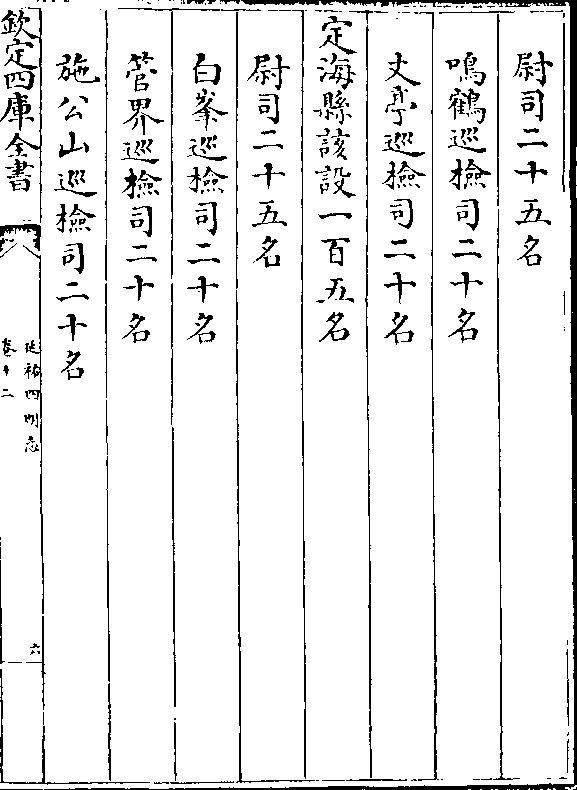 尉司二十五名
鳴鶴巡檢司二十名
丈亭巡檢司二十名
定海縣該設一百五名
尉司二十五名
白峯巡檢司二十名
管界巡檢司二十名
施公山巡檢司二十名
欽定四庫全書
延祐四明志
卷十二
六